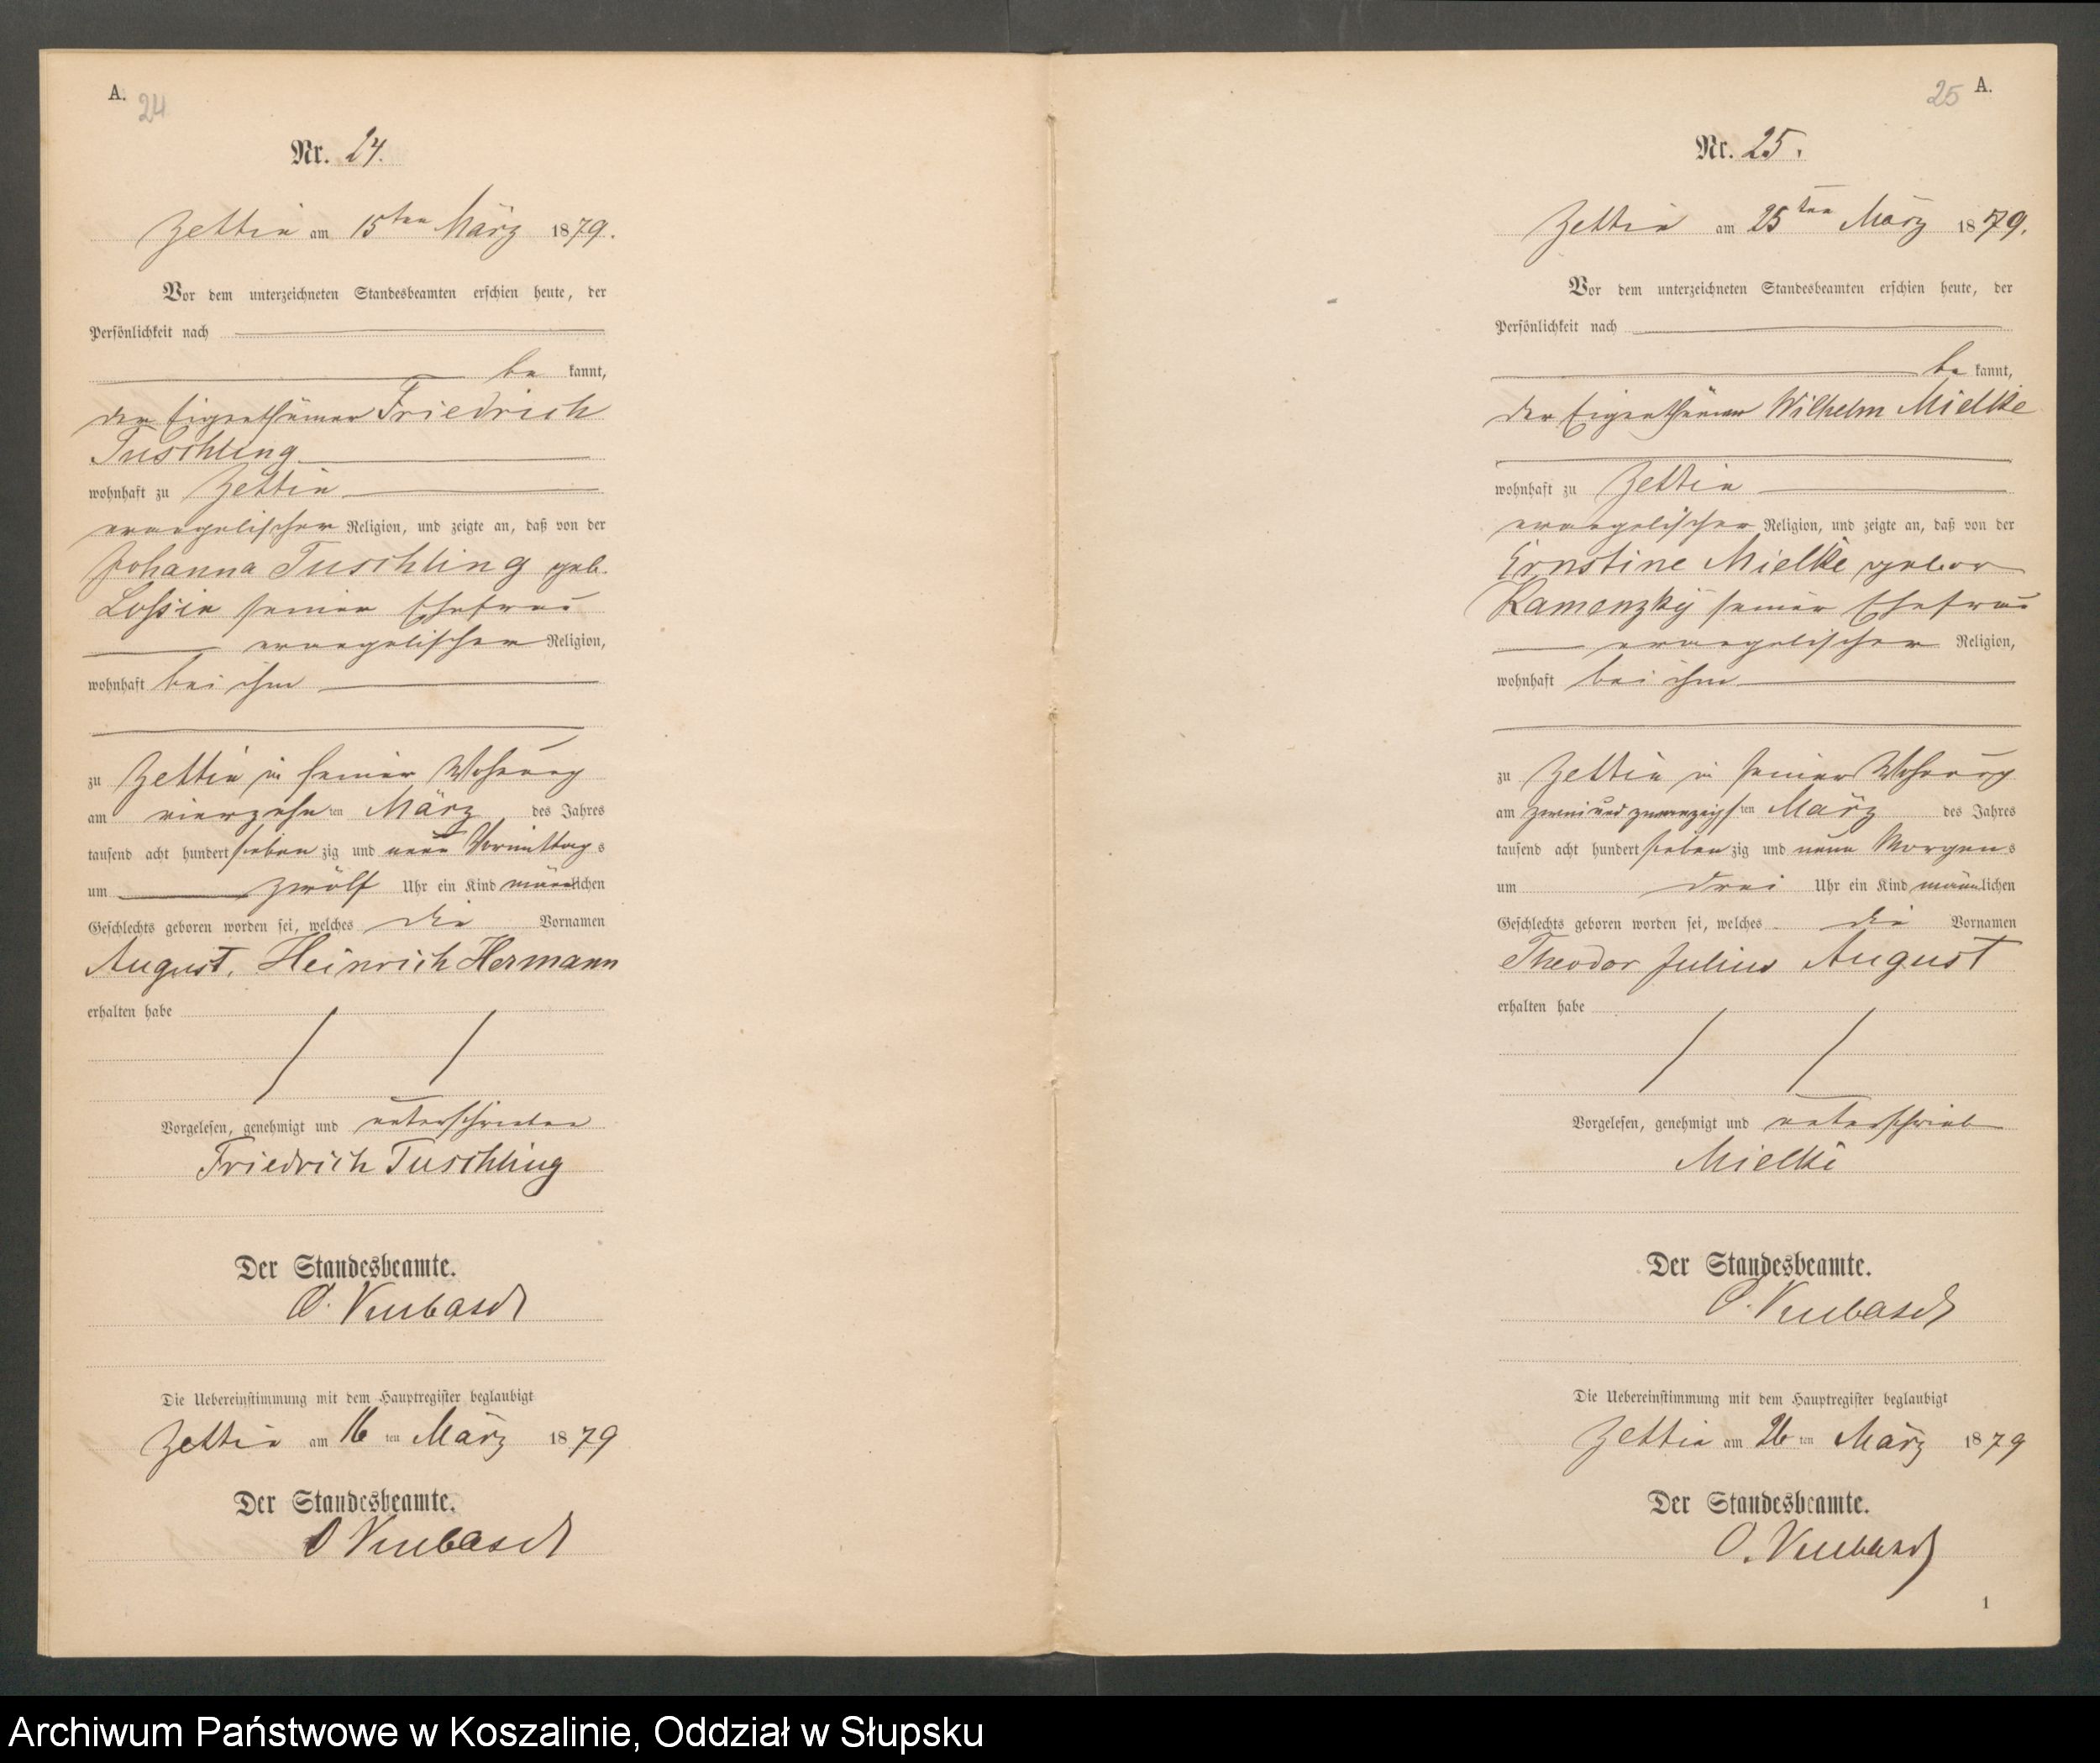 A.
24
Nr. 24.
Zettin am 15ten März 1879.
Vor dem unterzeichneten Standesbeamten erschien heute, der
Persönlichkeit nach
be kannt,
der Eigenthümer Friedrich
Tuschling
wohnhaft zu Zettin
evangelischer Religion, und zeigte an, daß von der
Johanna Tuschling geb.
Lossin seiner Ehefrau
evangelischer Religion,
wohnhaft bei ihm
zu Zettin in seiner Wohnung
am vierzehn ten März des Jahres
tausend acht hundert sieben zig und neun Vormittag s
um zwölf Uhr ein Kind männlichen
Geschlechts geboren worden sei, welches die Vornamen
August, Heinrich Hermann
erhalten habe
Vorgelesen, genehmigt und unterschrieben
Friedrich Tuschling
Der Standesbeamte.
O.
Die Uebereinstimmung mit dem Hauptregister beglaubigt
Zettin am 16 ten März 1879
Der Standesbeamte.
O
25
A.
Nr. 25.
Zettin am 25ten März 1879.
Vor dem unterzeichneten Standesbeamten erschien heute, der
Persönlichkeit nach
be kannt,
der Eigenthümer Wilhelm Mielke
wohnhaft zu Zettin
evangelischer Religion, und zeigte an, daß von der
Ernstine Mielke gebor
Kamenzky seiner Ehefrau
evangelischer Religion,
wohnhaft bei ihm
zu Zettin in seiner Wohnung
am zwei und zwanzigs ten März des Jahres
tausend acht hundert sieben zig und neun Morgen s
um drei Uhr ein Kind männlichen
Geschlechts geboren worden sei, welches die Vornamen
Theodor Julius August
erhalten habe
Vorgelesen, genehmigt und unterschrieb
Mielke
Der Standesbeamte.
O.
Die Uebereinstimmung mit dem Hauptregister beglaubigt
Zettin am 26 ten März 1879
Der Standesbeamte.
O.
1
Archiwum Państwowe w Koszalinie, Oddział w Słupsku